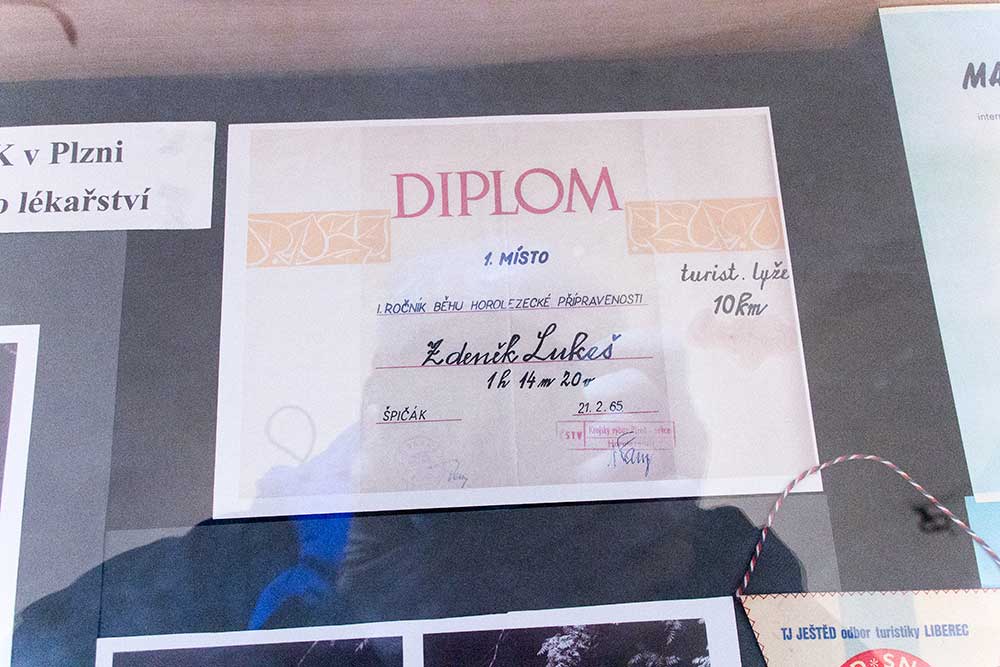 K v Plzni
lékařství
DIPLOM
1. MÍSTO
turist. lyže
10km
I. ROČNÍK BĚHU HOROLEZECKÉ PŘÍPRAVENOSTI
Zdeněk Lukeš
1h 14m 20v
ŠPIČÁK
21. 2. 65
STV
MA
inter
TJ JEŠTĚD odbor turistiky LIBEREC